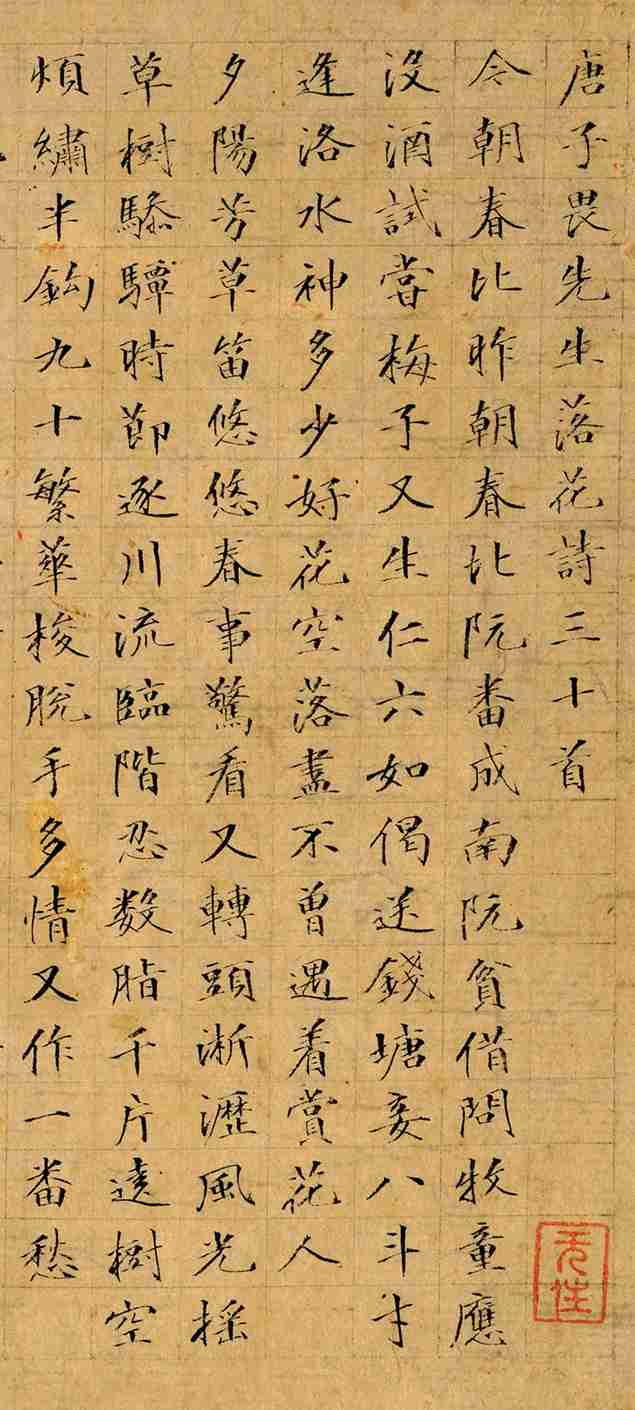 唐子畏先生落花詩三十首
今朝春比昨朝春北阮番成南阮貧借問牧童應
没酒試嘗梅子又生仁六如偈送錢塘妾八斗才
逢洛水神多少好花空落盡不曾遇着賞花人
夕陽芳草笛悠悠春事驚看又轉頭淅瀝風光搖
草樹驂驔時節逐川流臨階忍數脂千片遶樹空
煩繡半鈎九十繁華梭脫手多情又作一番愁